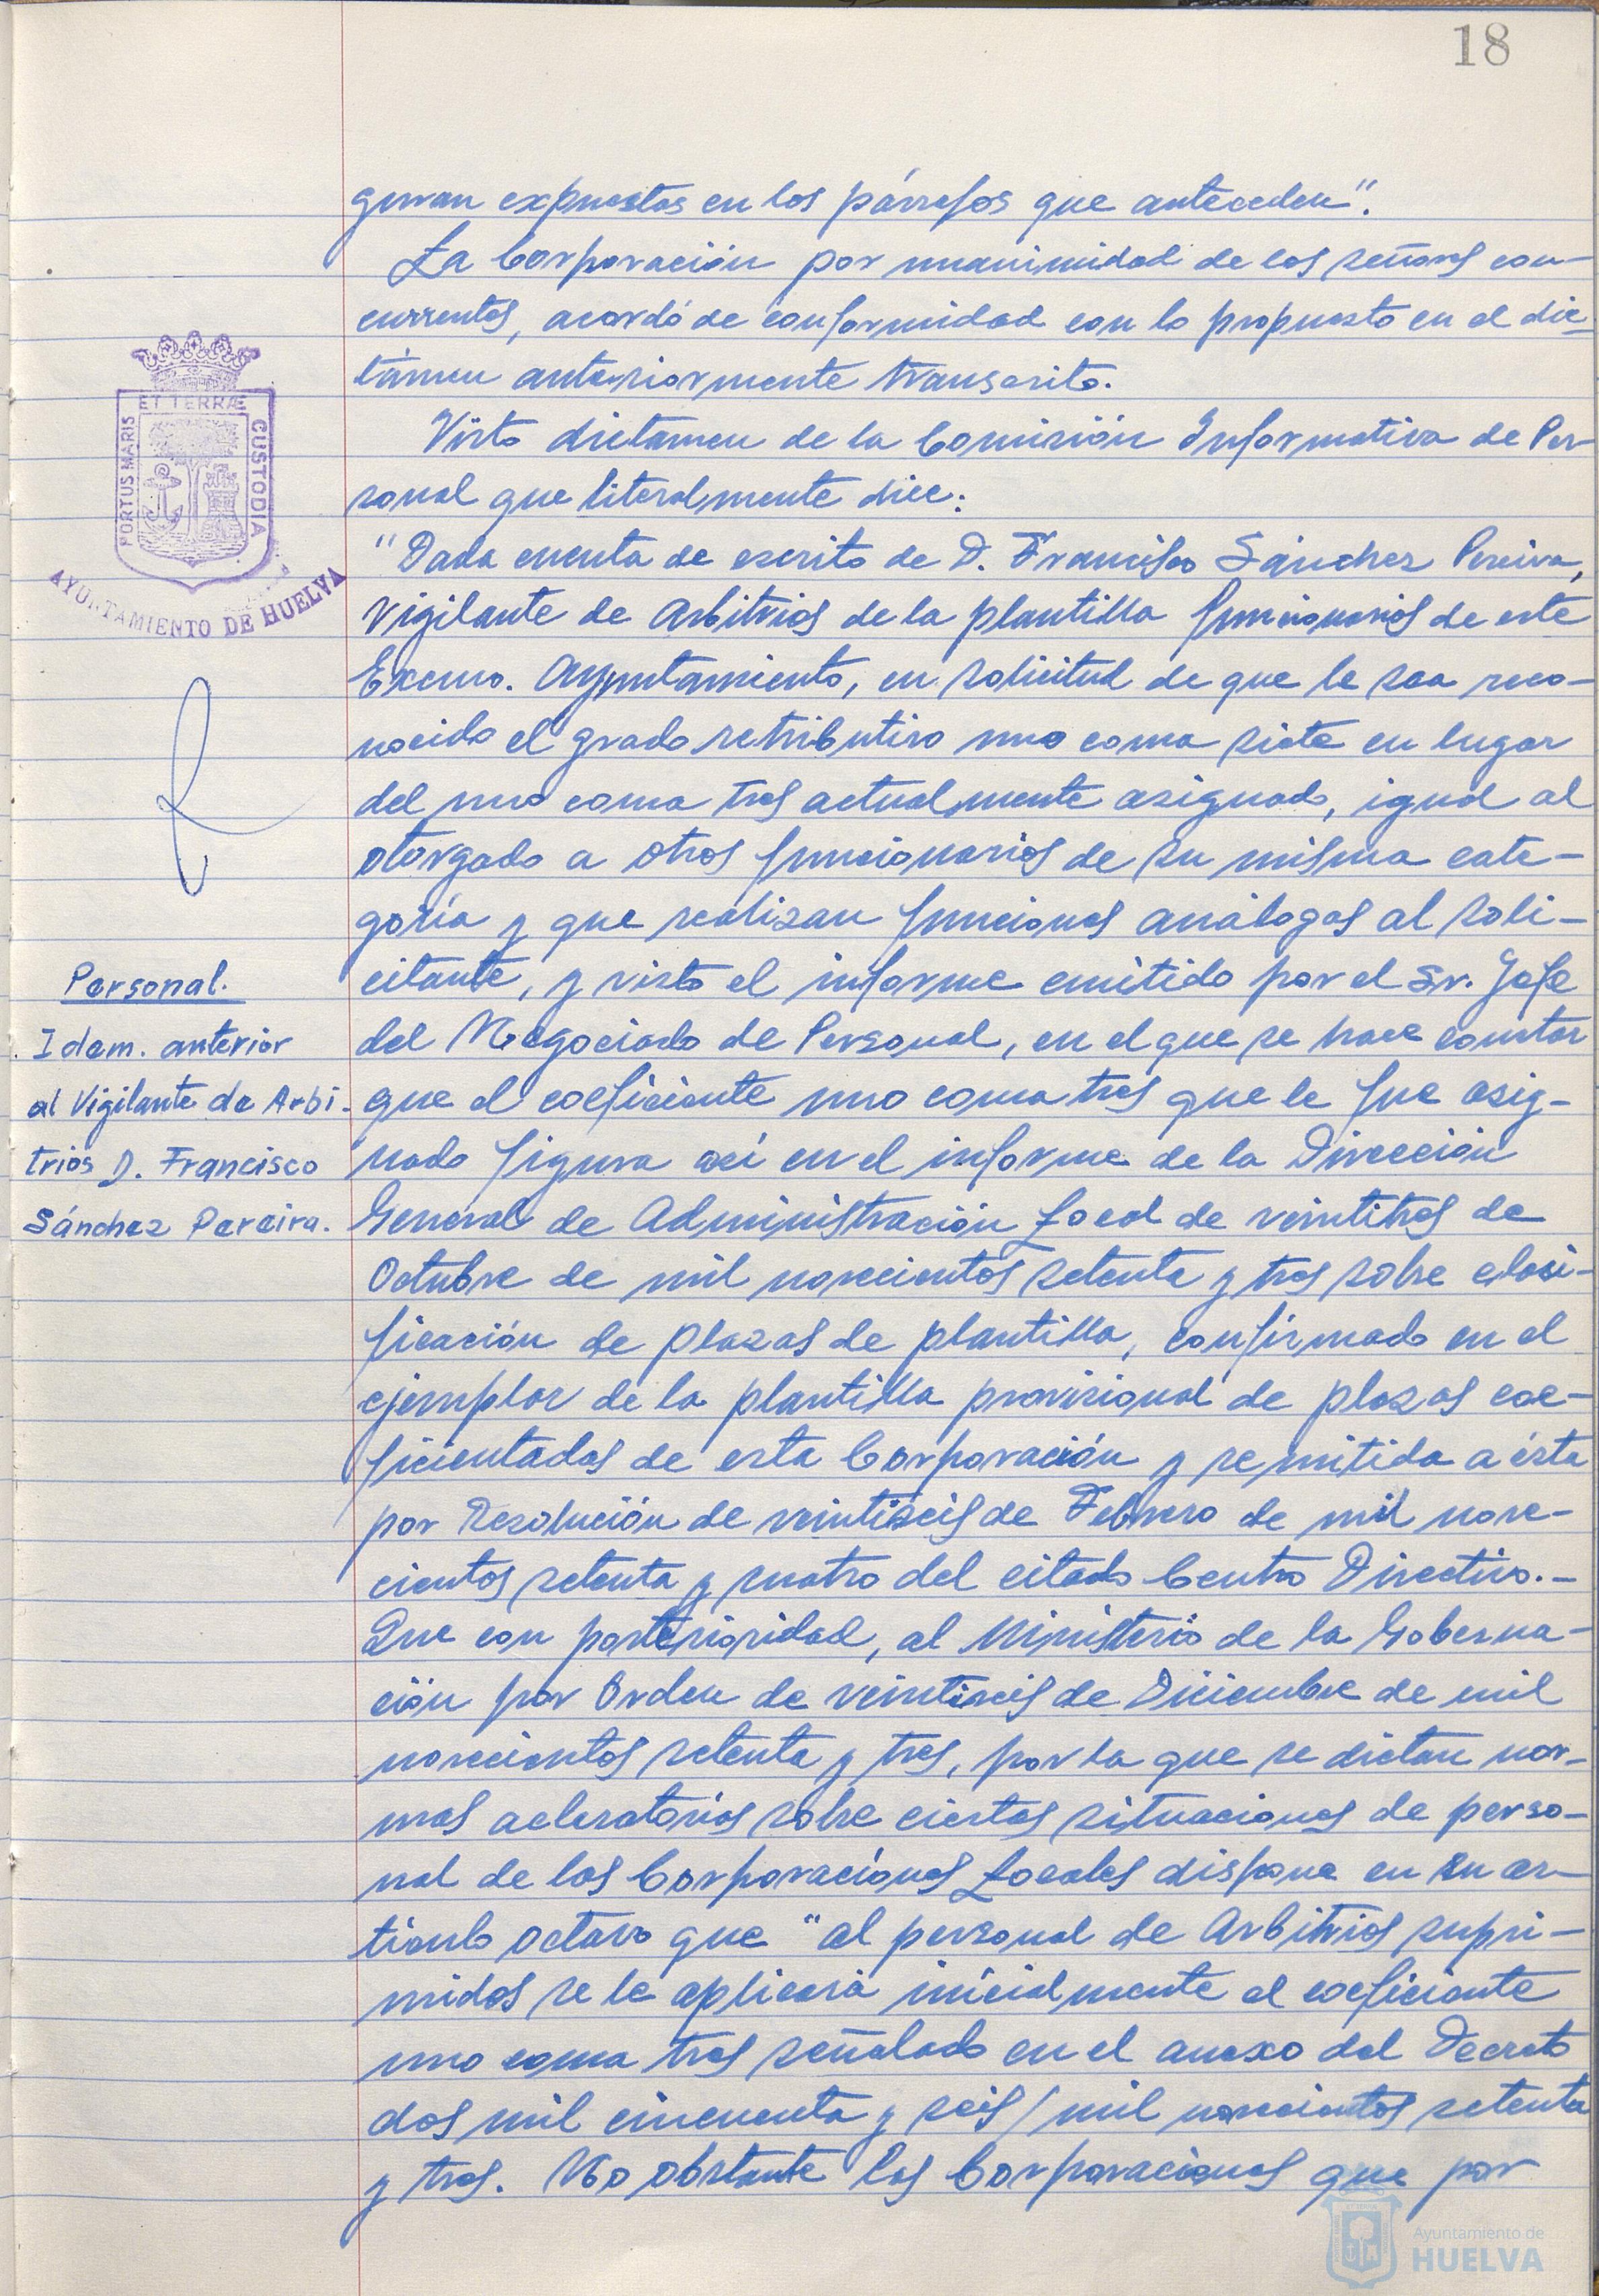 18
guran expuestas en los párrafos que anteceden".
La Corporación por unanimidad de los señores con-
currentes, acordó de conformidad con lo propuesto en el dic-
támen anteriormente transcrito.
Visto dictamen de la Comisión Informativa de Per-
sonal que literalmente dice:
"Dada cuenta de escrito de D. Francisco Sánchez Pereira,
Vigilante de Arbitrios de la plantilla funcionarios de este
Excmo. Ayuntamiento, en solicitud de que le sea reco-
nocido el grado retributivo uno coma siete en lugar
del uno coma tres actualmente asignado, igual al
otorgado a otros funcionarios de su misma cate-
goría y que realizan funciones análogas al soli-
citante, y visto el informe emitido por el Sr. Jefe
del Negociado de Personal, en el que se hace constar
que el coeficiente uno coma tres que le fue asig-
nado figura así en el informe de la Dirección
General de Administración Local de veintitres de
Octubre de mil novecientos setenta y tres sobre clasi-
ficación de plazas de plantilla, confirmado en el
ejemplar de la plantilla provisional de plazas coe-
ficientadas de esta Corporación y remitida a ésta
por Resolución de veintiseis de Febrero de mil nove-
cientos setenta y cuatro del citado Centro Directivo.-
Que con posterioridad, al Ministerio de la Goberna-
ción por Orden de veintiseis de Diciembre de mil
novecientos setenta y tres, por la que se dictan nor-
mas aclaratorias sobre ciertas situaciones de perso-
nal de las Corporaciones Locales dispone en su ar-
tículo octavo que "al personal de Arbitrios supri-
midos se le aplicará inicialmente el coeficiente
uno coma tres señalado en el anexo del Decreto
dos mil cincuenta y seis/mil novecientos setenta
y tres. No obstante las Corporaciones que por
ET TERRÆ
PORTUS MARIS
CUSTODIA
AYUNTAMIENTO DE HUELVA
Personal.
Idem. anterior
al Vigilante de Arbi-
trios D. Francisco
Sánchez Pereira.
Ayuntamiento de
HUELVA